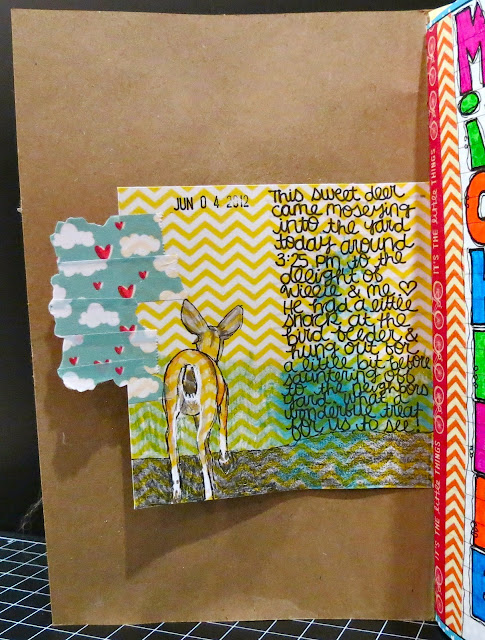 JUN 0 4 2012
This sweet deer
came moseying
into the yard
today around
3:25 pm to the
delight of
& me ♡
He had a little
snack at the
bird feeder &
hung out for
a little bit before
sauntering off
to the neighbors
yard. What a
treat
for us to see!
IT'S THE little THINGS
IT'S THE little THINGS